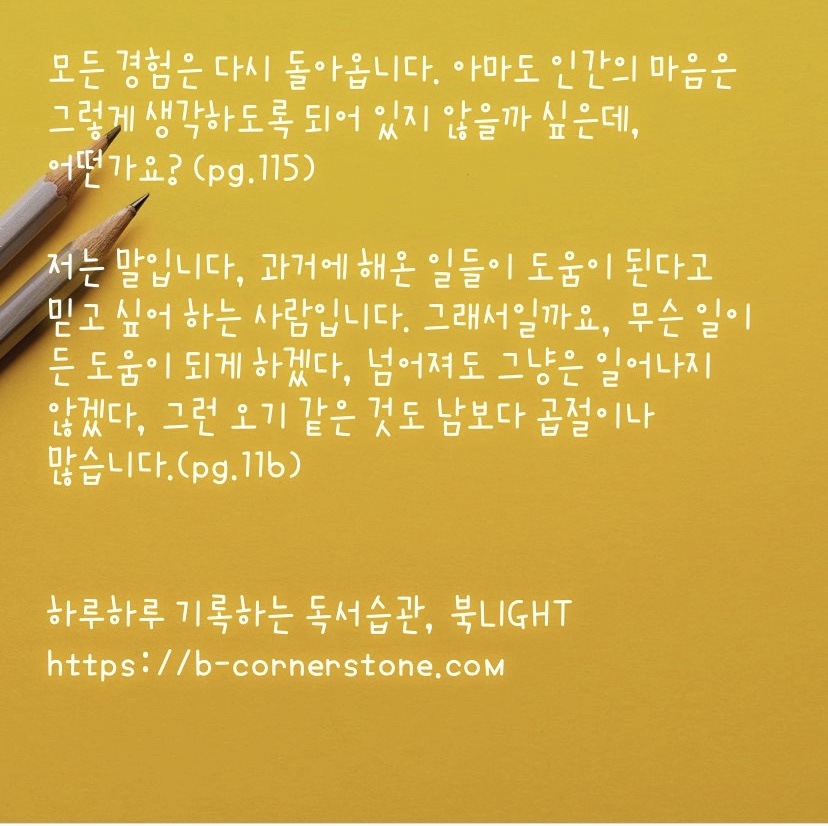 모든 경험은 다시 돌아옵니다. 아마도 인간의 마음은
그렇게 생각하도록 되어 있지 않을까 싶은데,
어떤가요? (pg.115)
저는 말입니다, 과거에 해온 일들이 도움이 된다고
믿고 싶어 하는 사람입니다. 그래서일까요, 무슨 일이
든 도움이 되게 하겠다, 넘어져도 그냥은 일어나지
않겠다, 그런 오기 같은 것도 남보다 곱절이나
많습니다.(pg.116)
하루하루 기록하는 독서습관, 북LIGHT
https://b-cornerstone.com